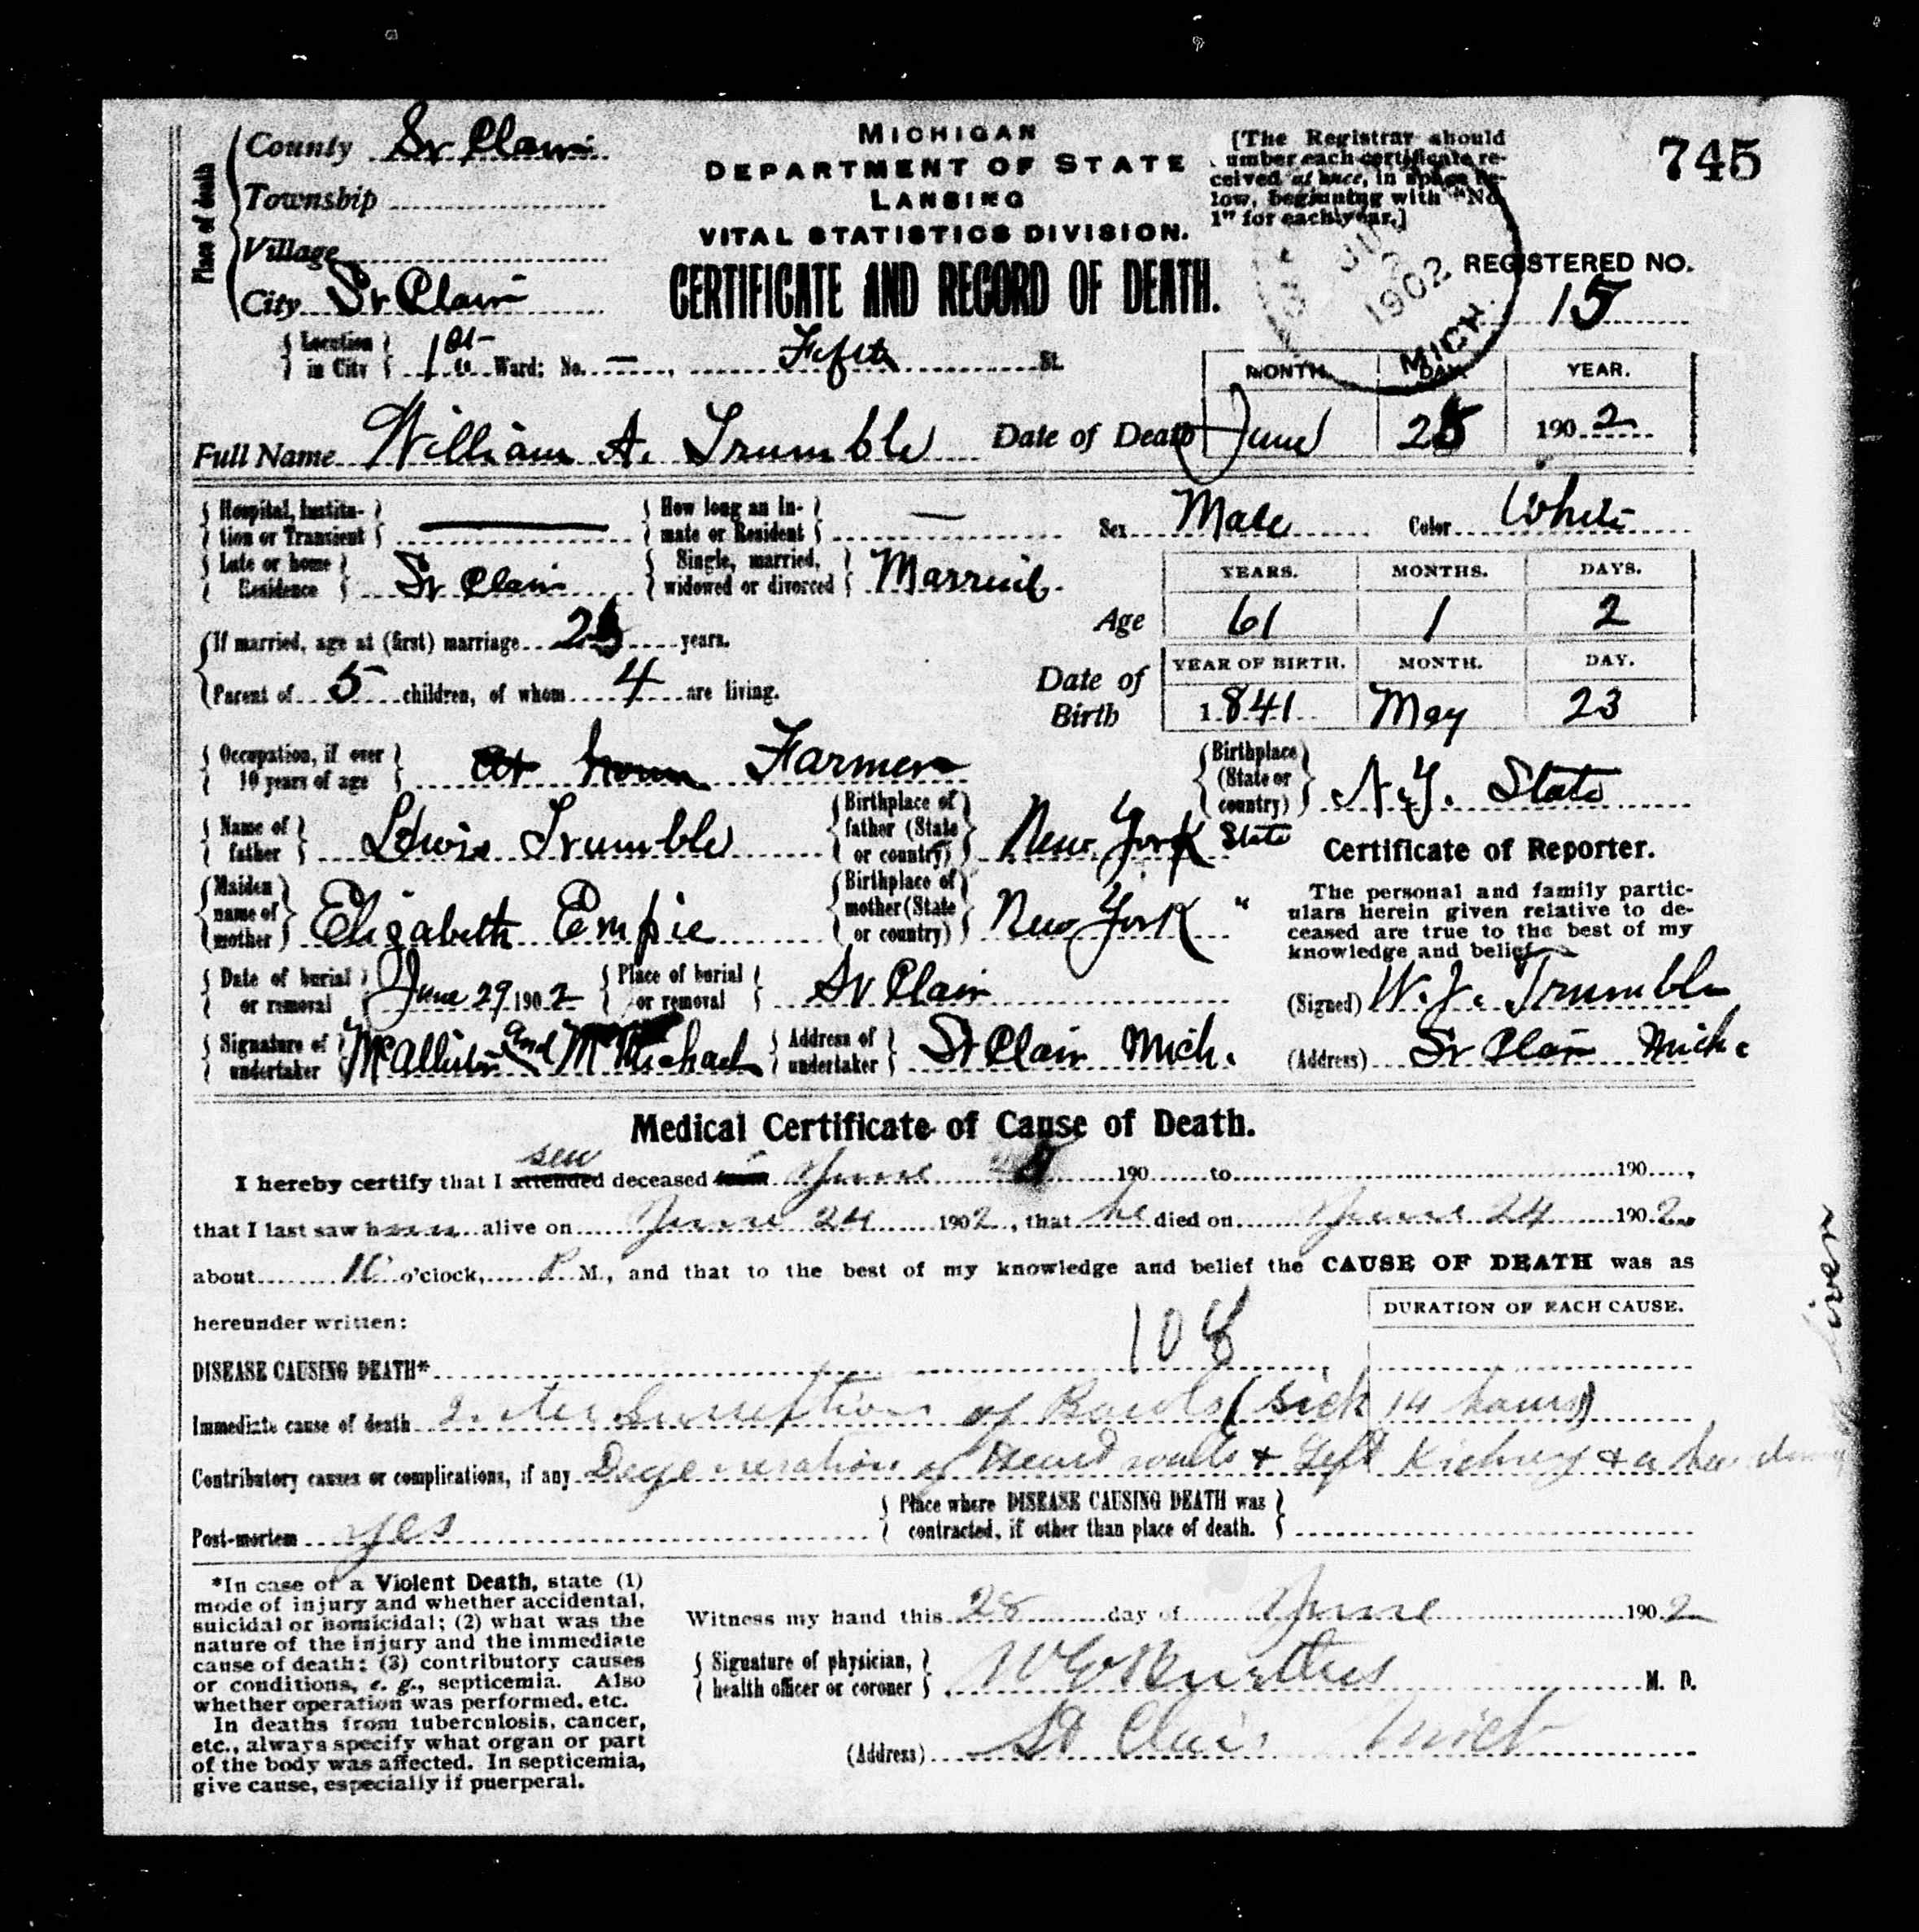 745
Place of death
County St Clair
Township
Village
City St Clair
MICHIGAN
DEPARTMENT OF STATE
LANSING
VITAL STATISTICS DIVISION.
CERTIFICATE AND RECORD OF DEATH.
[The Registrar should
umber each certificate re-
ceived at once, in space be-
low, beginning with "No.
1" for each year.]
1902
MICH.
REGISTERED NO.
15
Location in City 1st Ward; No. — , Fifth St.
MONTH. DAY. YEAR.
Full Name William A. Trumble Date of Death June 25 1902
Hospital, Institu-tion or Transient — How long an In-mate or Resident — Sex Male Color White
Late or home Residence St Clair Single, married, widowed or divorced Married
YEARS. MONTHS. DAYS.
Age 61 1 2
If married, age at (first) marriage years.
Parent of 5 children, of whom 4 are living.
YEAR OF BIRTH. MONTH. DAY.
Date of Birth 1841 May 23
Occupation, if over 10 years of age at home Farmer
Birthplace (State or country) N.Y. State
Name of father Lewis Trumble Birthplace of father (State or country) New York State
Maiden name of mother Elizabeth Empie Birthplace of mother (State or country) New York "
Certificate of Reporter.
The personal and family partic-
ulars herein given relative to de-
ceased are true to the best of my
knowledge and belief
(Signed) W. J. Trumble
(Address) St Clair Mich.
Date of burial or removal June 29, 1902 Place of burial or removal St Clair
Signature of undertaker McAllister and McMichael Address of undertaker St Clair Mich.
Medical Certificate of Cause of Death.
I hereby certify that I attended seen deceased from June 190 to 190 ,
that I last saw him alive on June 24 1902, that he died on June 24 1902
about o'clock, P M., and that to the best of my knowledge and belief the CAUSE OF DEATH was as
hereunder written:
DURATION OF EACH CAUSE.
108
DISEASE CAUSING DEATH*
Immediate cause of death of Bowels (Sick 14 hours)
Contributory causes or complications, if any Degeneration of Heart walls & Left Kidney &
Post-mortem yes
Place where DISEASE CAUSING DEATH was contracted, if other than place of death.
Liver
*In case of a Violent Death, state (1)
mode of injury and whether accidental,
suicidal or homicidal; (2) what was the
nature of the injury and the immediate
cause of death; (3) contributory causes
or conditions, e. g., septicemia. Also
whether operation was performed, etc.
In deaths from tuberculosis, cancer,
etc., always specify what organ or part
of the body was affected. In septicemia,
give cause, especially if puerperal.
Witness my hand this 28 day of June 1902
Signature of physician, health officer or coroner M. D.
(Address) St Clair Mich